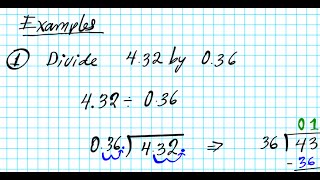 Examples
① Divide 4.32 by 0.36
4.32 ÷ 0.36
0.36. ) 4.32. ⇒ 36 ) 43
01
- 36